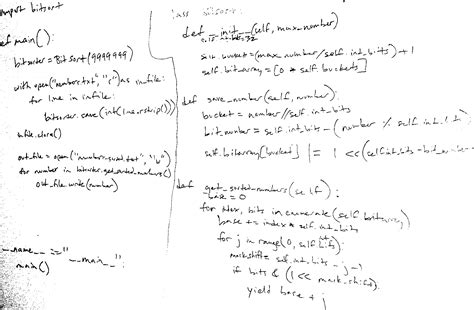 import bitsort
def main():
bitsorter = BitSort(9999999)
with open("numbers.txt", "r") as infile:
for line in infile:
bitsorter.save(int(line.rstrip()))
infile.close()
out_file = open("number-sorted.txt", "w")
for number in bitsorter.get_sorted_numbers()
out_file.write(number)
__name__ == "__main__":
main()
class bitsort:
def __init__(self, max_number)
self.int_bits=32
self.buckets=(max_number/self.int_bits)+1
self.bit_array=[0 * self.buckets]
def save_number(self, number):
bucket = number//self.int_bits
bit_number = self.int_bits - (number % self.int_bits)
self.bitarray[bucket] |= 1 <<(self.int_bits -
def get_sorted_numbers(self):
base = 0
for index, bits in enumerate(self.bitarray)
base += index * self.int_bits
for j in range(0, self.bits):
mask_shift = self.int_bits - j - 1
if bits & (1 << mask_shift):
yield base + j